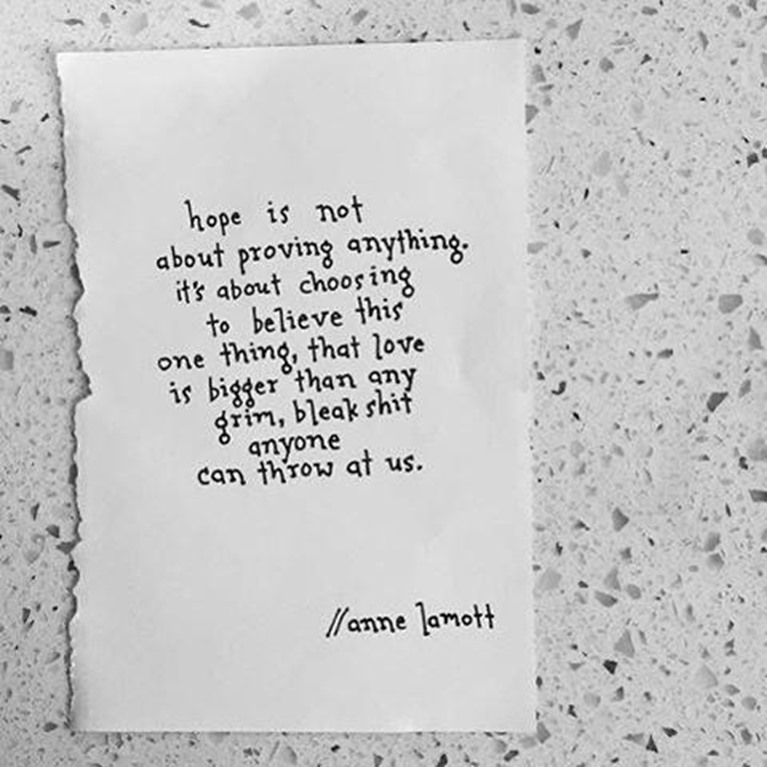 hope is not
about proving anything.
it's about choosing
to believe this
one thing, that love
is bigger than any
grim, bleak shit
anyone
can throw at us.
//anne lamott